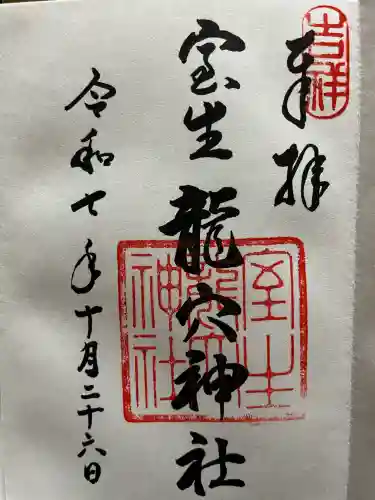 吉祥
奉拝
室生龍穴神社
室生
龍穴
神社
令和七年十月二十六日